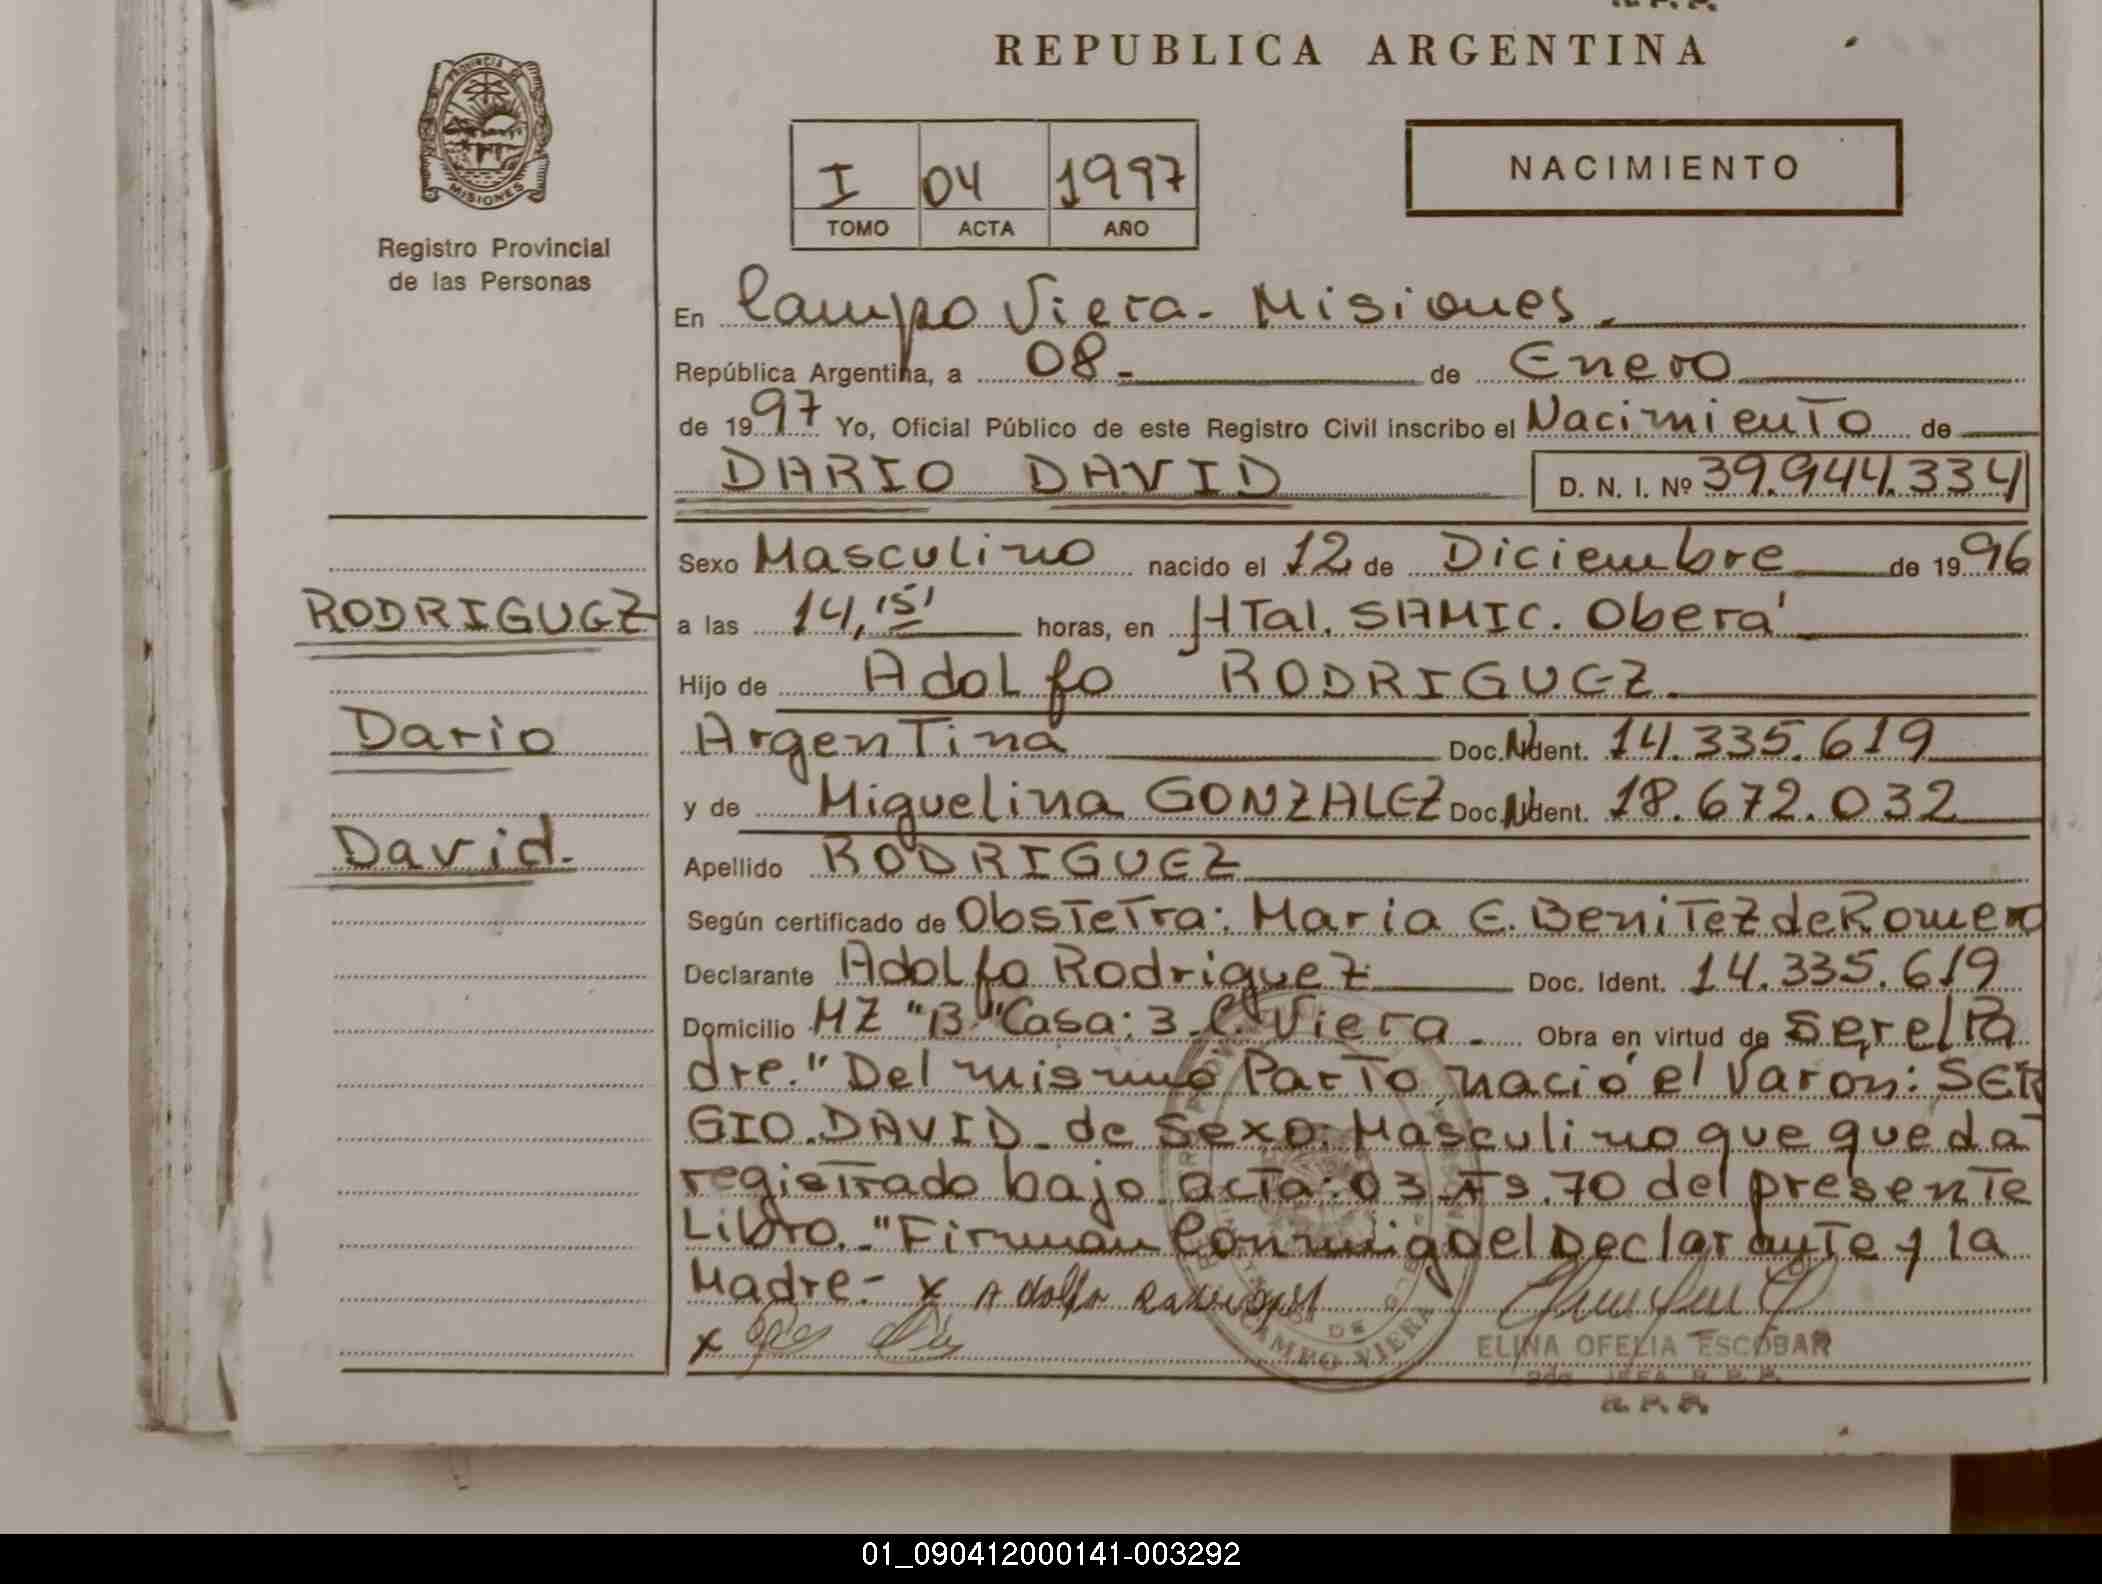 REPUBLICA ARGENTINA
PROVINCIA
MISIONES
Registro Provincial
de las Personas
I 04 1997
TOMO ACTA AÑO
NACIMIENTO
En Campo Viera - Misiones.
República Argentina, a 08 - de Enero
de 1997 Yo, Oficial Público de este Registro Civil inscribo el Nacimiento de
DARIO DAVID D. N. I. Nº 39.944.334
Sexo Masculino nacido el 12 de Diciembre de 1996
RODRIGUEZ
a las 14,15' horas, en HTal. SAMIC. Oberá
Hijo de Adolfo RODRIGUEZ.
Dario
Argentina Doc. Ident. 14.335.619
y de Miguelina GONZALEZ Doc. Ident. 18.672.032
David.
Apellido RODRIGUEZ
Según certificado de Obstetra: Maria E. Benitez de Romero
Declarante Adolfo Rodriguez Doc. Ident. 14.335.619
Domicilio MZ "B" Casa: 3 - C. Viera - Obra en virtud de ser el Pa
dre." Del mismo Parto nació el Varon: SER
GIO DAVID - de Sexo: Masculino que queda
registrado bajo acta: 03 Fs. 70 del presente
Libro. - "Firman Conmigo el Declarante y la
Madre - x Adolfo
x
CAMPO VIERA
ELINA OFELIA ESCOBAR
2da JEFA R. P. P.
R. P. P.
01_090412000141-003292